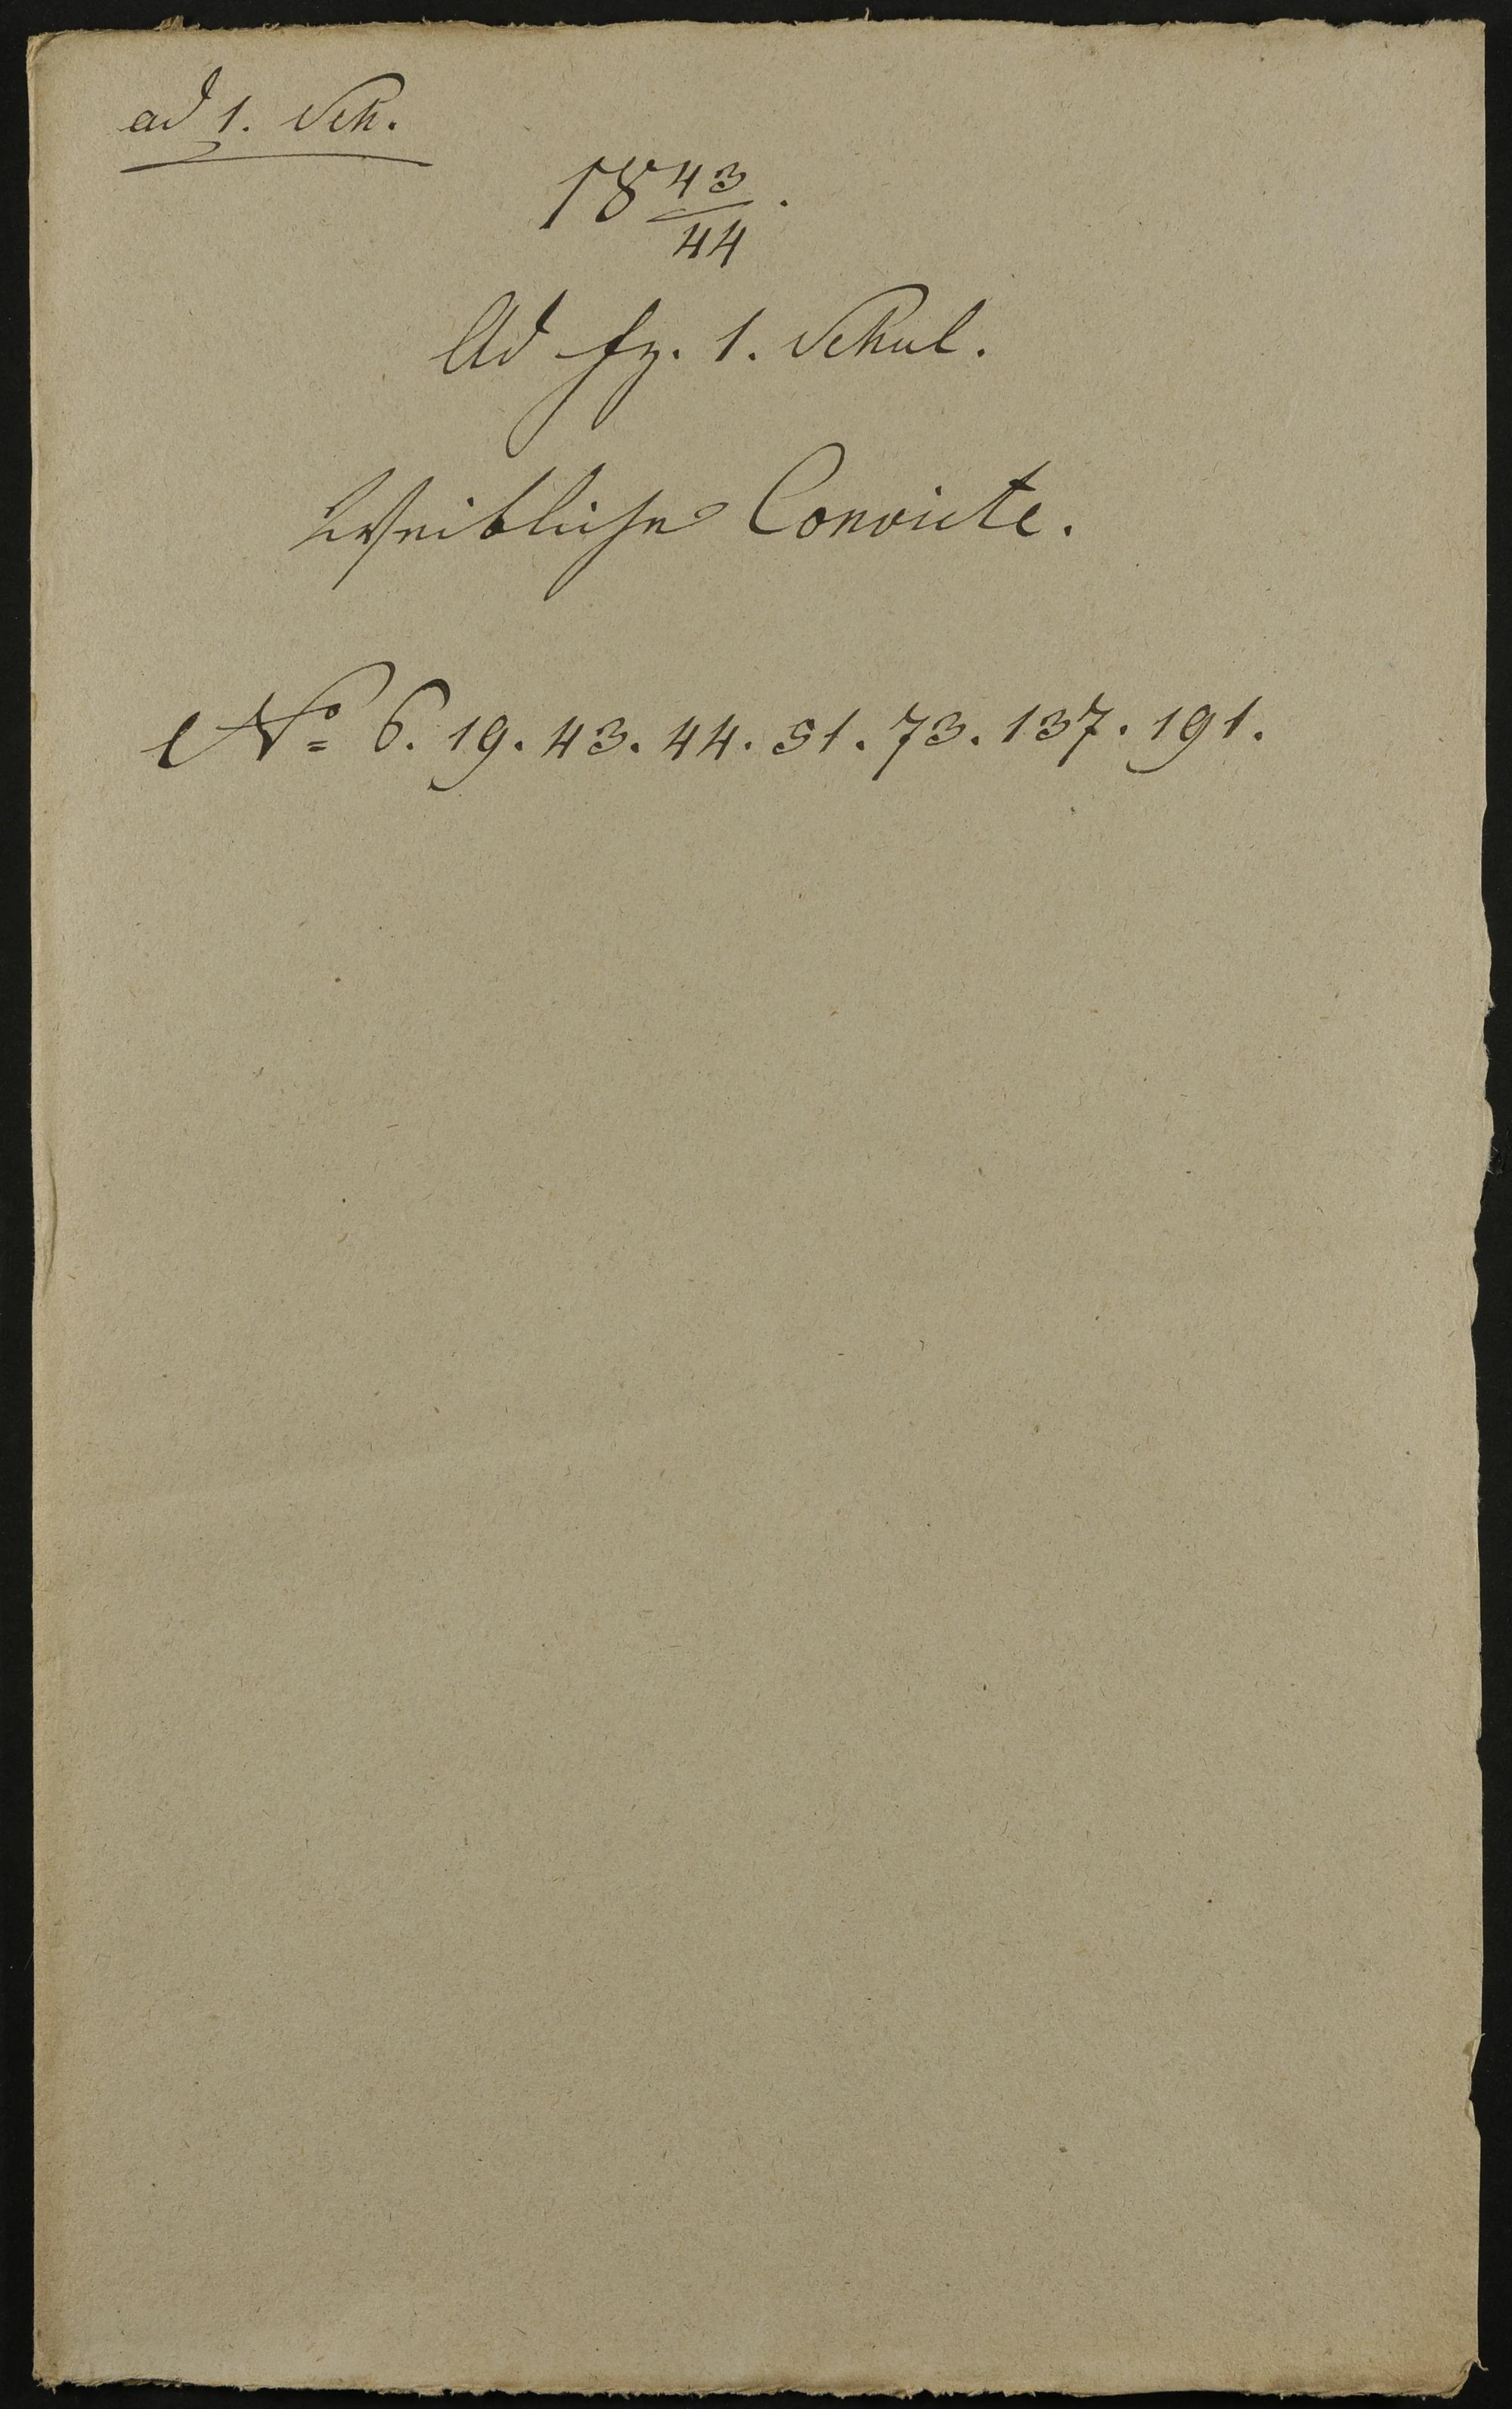 ad 1. Sch.
18 43/44.
Ad fz. 1. Schul.
Weibliche Convicte.
No 6. 19. 43. 44. 51. 73. 137. 191.